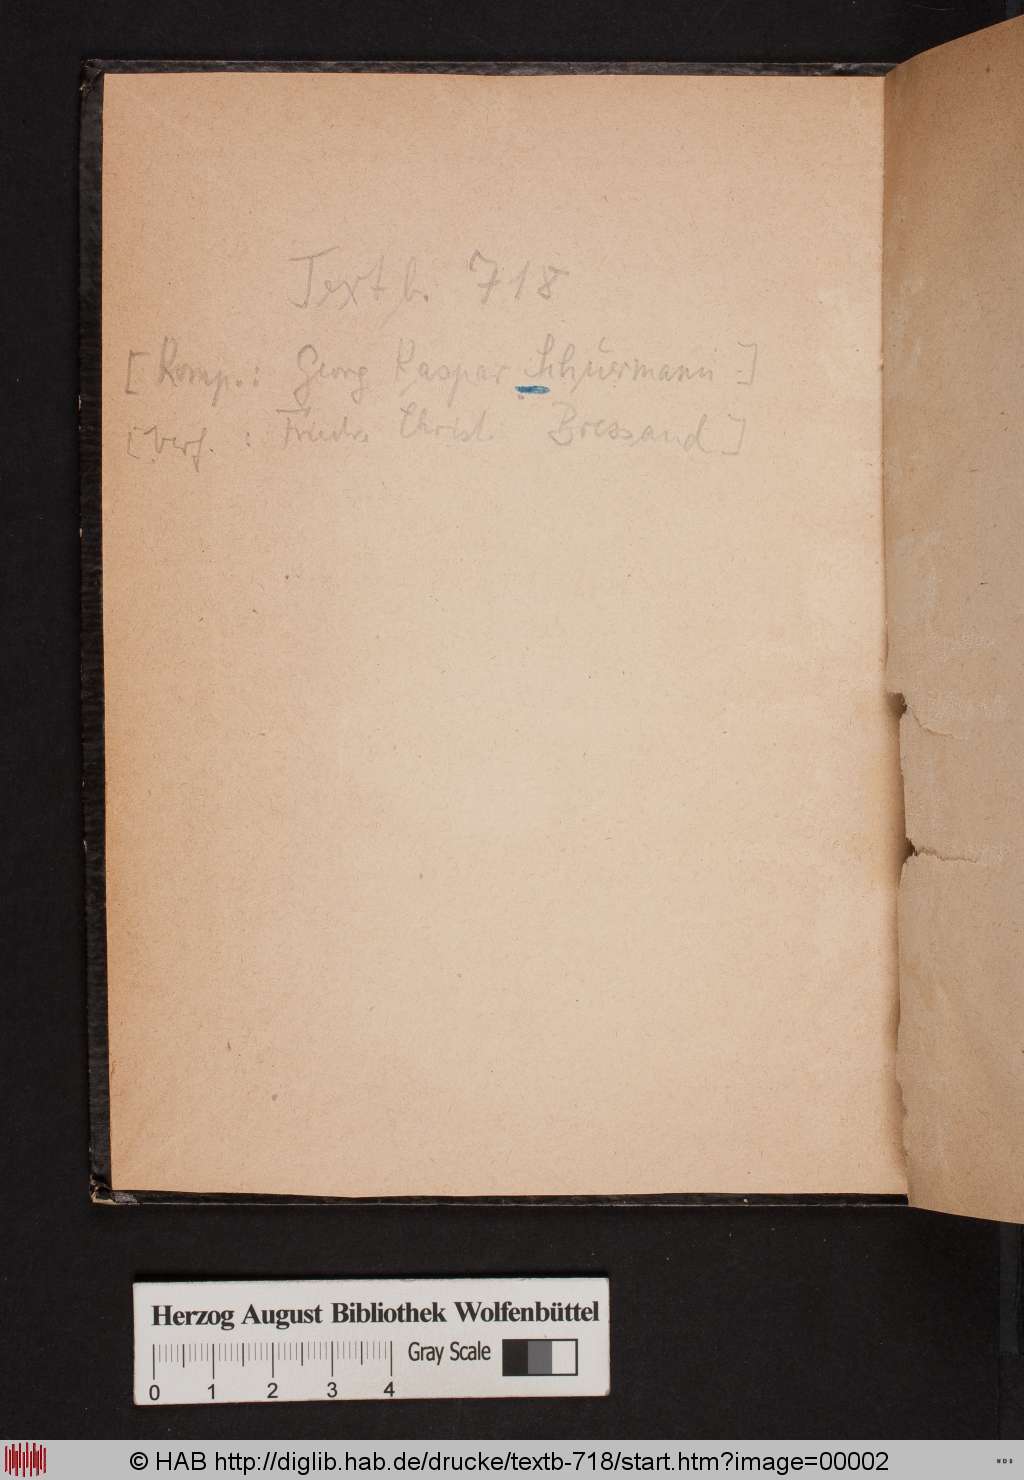 Textb. 718
[Komp.: Georg Kaspar Schürmann]
[Verf. : Friedr. Christ. Bressand]
Herzog August Bibliothek Wolfenbüttel
Gray Scale
0 1 2 3 4
© HAB http://diglib.hab.de/drucke/textb-718/start.htm?image=00002